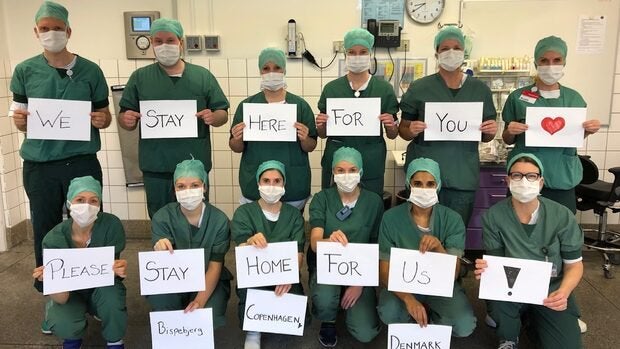 We Stay Here For You ❤
Please Stay Home For Us !
Bispebjerg Copenhagen, Denmark